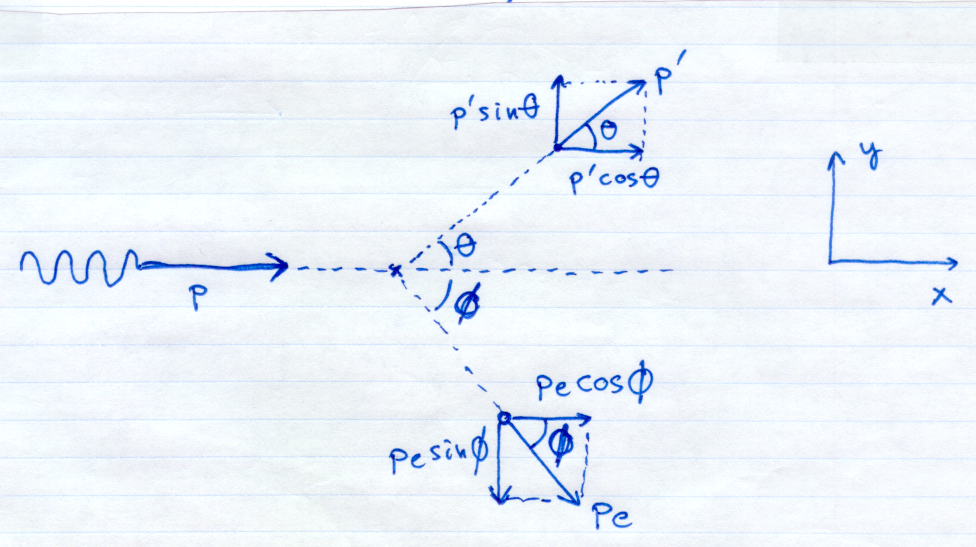 p′
p′sinθ
θ
p′cosθ
y
θ
p
ϕ
x
pe cosϕ
pe sinϕ
ϕ
pe